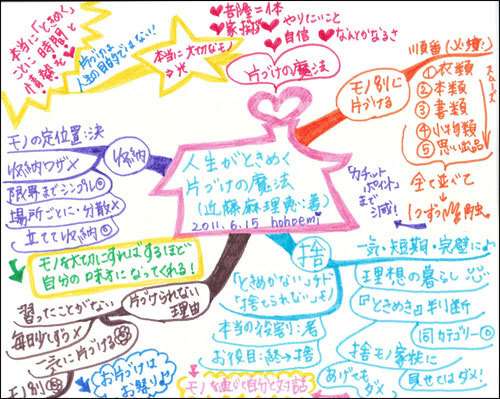 本当に「ときめく」
ことに時間と
情熱を
片づけは
人生の目的ではない!
本当に大切なモノ
⇒光
部屋=体
家族
やりたいこと
自信
なんとかなるさ
片づけの魔法
モノ別に
片づける
順番(必ず!)
①衣類
②本類
③書類
④小物類
⑤思い出品
スムーズ
全て並べて
1つずつ触
カチット
ポイント
まで
減!
人生がときめく
片づけの魔法
(近藤麻理恵:著)
2011.6.15 hohoemi
収納
モノの定位置:決
収納ワザ×
限界までシンプル◎
場所ごとに・分散×
立てて収納◎
モノを大切にすればするほど
自分の味方になってくれる!
片づけられない
理由
習ったことがない
毎日少しずつ×
一気に片づける
モノ別
お片づけは
お祭り
捨
一気・短期・完璧に
理想の暮らし
『ときめき』判断
同カテゴリー◎
「ときめかない」ケド
「捨てられない」モノ
本当の役割:考
お役目:終→捨
捨モノ家族に
見せてはダメ!
あげてもダメ!
モノを通じて自分と対話